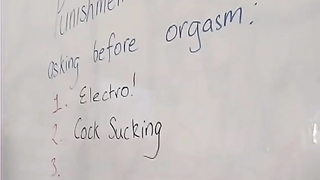 Punishmen
asking before orgasm:
1. Electro!
2. Cock Sucking
3.